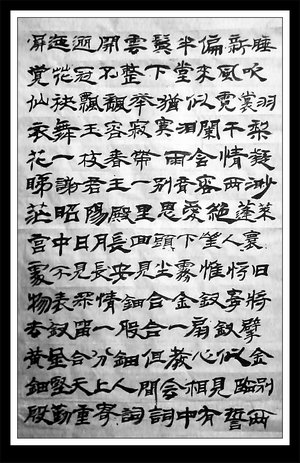 屏迤逦開雲鬢半偏新睡
覺花冠不整下堂來風吹
仙袂飄飄舉猶似霓裳羽
衣舞玉容寂寞淚闌干梨
花一枝春帶雨含情凝
睇謝君王一別音容兩渺
茫昭陽殿里恩愛絕蓬萊
宮中日月長回頭下望人寰
處不見長安見塵霧惟將旧
物表深情鈿合金釵寄將
去釵留一股合一扇釵擘
黄金合分鈿但教心似金
鈿堅天上人間會相見臨別
殷勤重寄詞詞中有誓兩